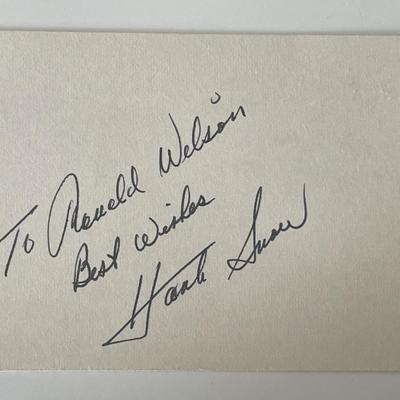 To Ronald Wilson
Best Wishes
Hank Snow